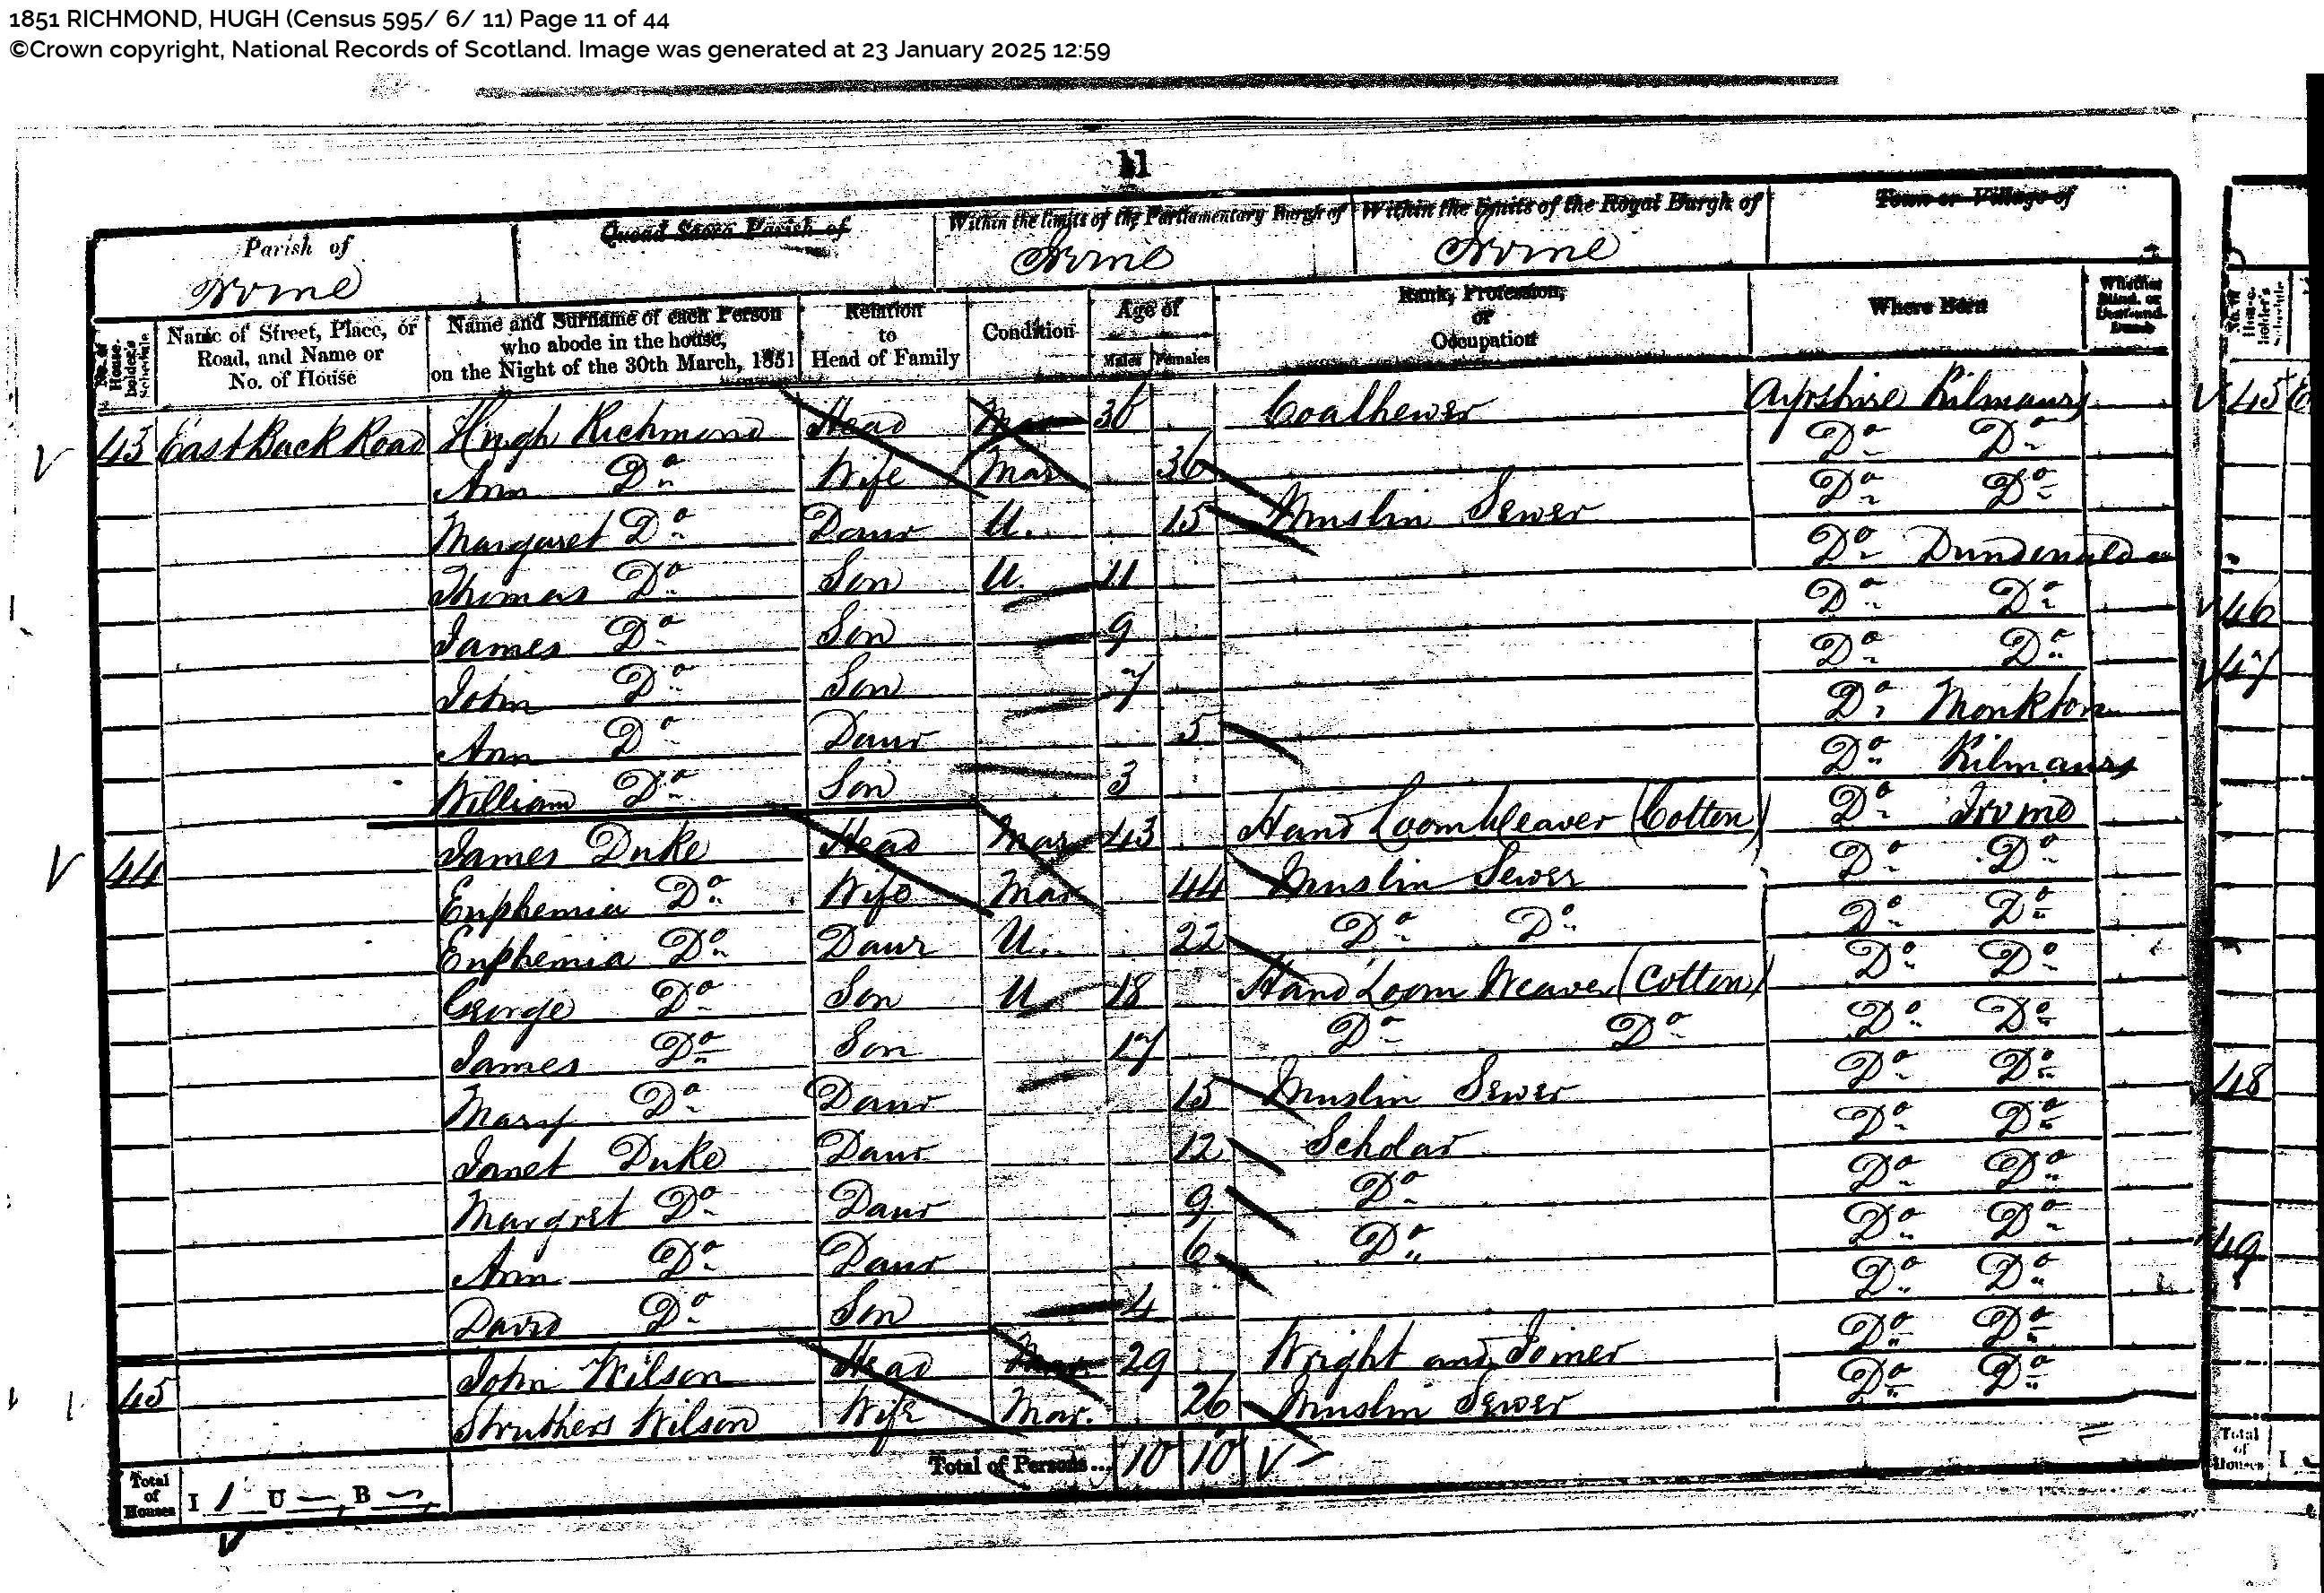 1851 RICHMOND, HUGH (Census 595/ 6/ 11) Page 11 of 44
©Crown copyright, National Records of Scotland. Image was generated at 23 January 2025 12:59
11
Parish of Quoad Sacra Parish of Within the limits of the Parliamentary Burgh of Within the limits of the Royal Burgh of Town or Village of
Irvine Irvine Irvine
No. of House-holder's Schedule Name of Street, Place, or Road, and Name or No. of House Name and Surname of each Person who abode in the house, on the Night of the 30th March, 1851 Relation to Head of Family Condition Age of Males Females Rank, Profession, or Occupation Where Born Whether Blind, or Deaf and Dumb
43 East Back Road Hugh Richmond Head Mar 36 Coalhewer Ayrshire Kilmaurs
Ann Do Wife Mar 36 Do Do
Margaret Do Daur U. 15 Muslin Sewer Do Do
Thomas Do Son U. 11 Do Dundonald
James Do Son 9 Do Do
John Do Son 7 Do Do
Ann Do Daur 5 Do Monkton
William Do Son 3 Do Kilmaurs
44 James Duke Head Mar 43 Hand Loom Weaver (Cotton) Do Irvine
Euphemia Do Wife Mar 44 Muslin Sewer Do Do
Euphemia Do Daur U. 22 Do Do Do Do
George Do Son U 18 Hand Loom Weaver (Cotton) Do Do
James Do Son 17 Do Do Do Do
Mary Do Daur 15 Muslin Sewer Do Do
Janet Duke Daur 12 Scholar Do Do
Margret Do Daur 9 Do Do Do
Ann Do Daur 6 Do Do Do
David Do Son 4 Do Do
45 John Wilson Head Mar 29 Wright and Joiner Do Do
Struthers Wilson Wife Mar. 26 Muslin Sewer Do Do
Total of Houses I 1 U —, B — Total of Persons... 10 10
No. of House-holder's Schedule
45
46
47
48
49
Total of Houses I